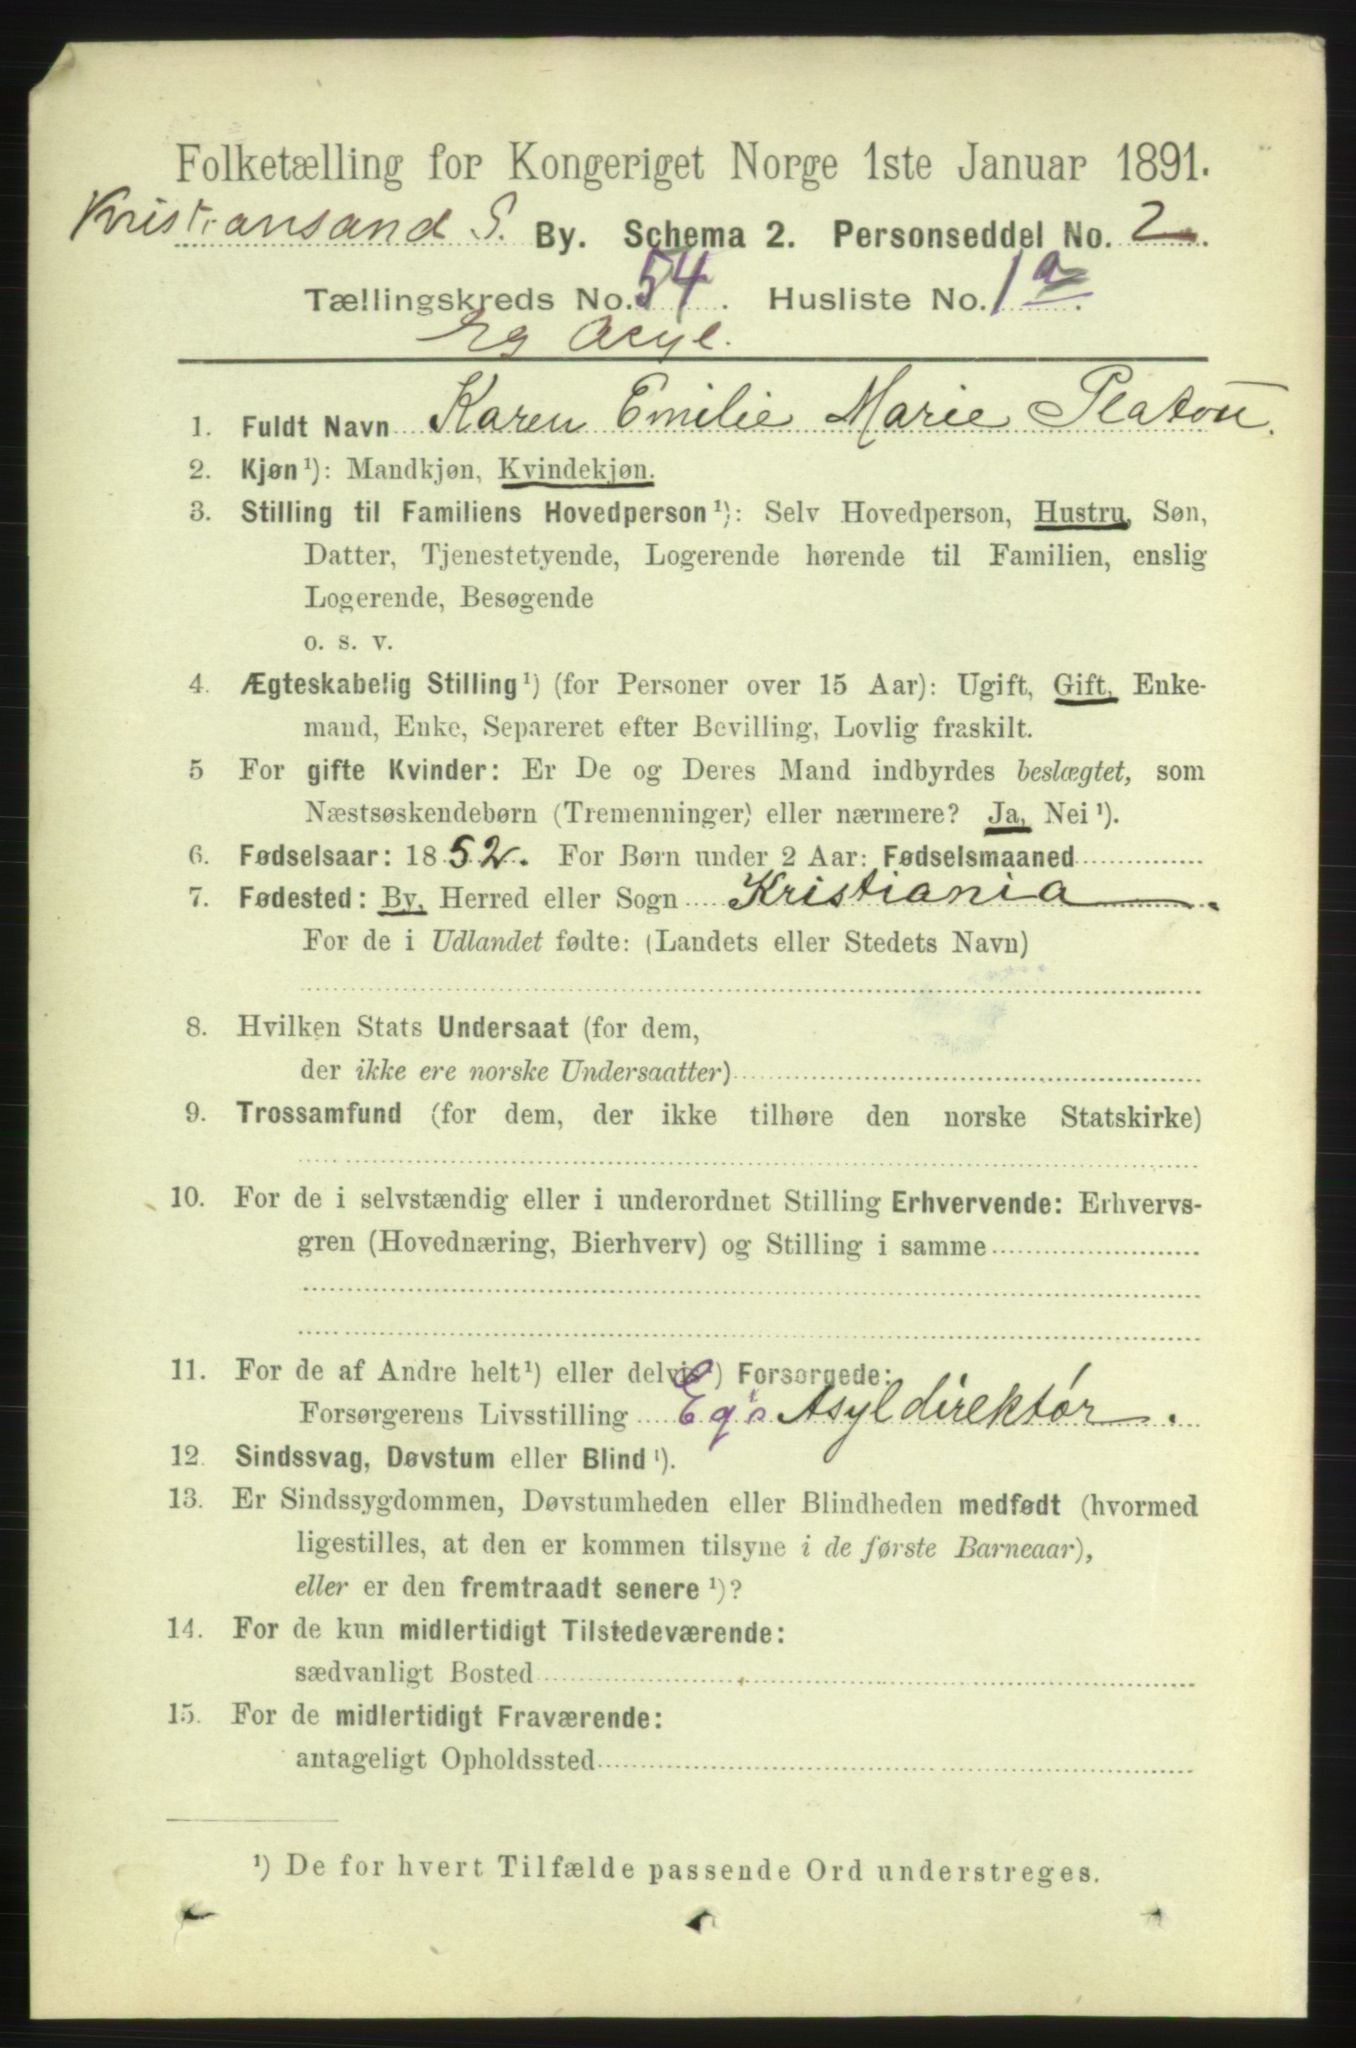 Folketælling for Kongeriget Norge 1ste Januar 1891.
Kristiansand S. By. Schema 2. Personseddel No. 2
Tællingskreds No. 54. Husliste No. 1a.
Eg Asyl.
1. Fuldt Navn Karen Emilie Marie Platou.
2. Kjøn¹): Mandkjøn, Kvindekjøn.
3. Stilling til Familiens Hovedperson¹): Selv Hovedperson, Hustru, Søn,
Datter, Tjenestetyende, Logerende hørende til Familien, enslig
Logerende, Besøgende
o. s. v.
4. Ægteskabelig Stilling¹) (for Personer over 15 Aar): Ugift, Gift, Enke-
mand, Enke, Separeret efter Bevilling, Lovlig fraskilt.
5 For gifte Kvinder: Er De og Deres Mand indbyrdes beslægtet, som
Næstsøskendebørn (Tremenninger) eller nærmere? Ja, Nei¹).
6. Fødselsaar: 1852. For Børn under 2 Aar: Fødselsmaaned
7. Fødested: By, Herred eller Sogn Kristiania.
For de i Udlandet fødte: (Landets eller Stedets Navn)
8. Hvilken Stats Undersaat (for dem,
der ikke ere norske Undersaatter)
9. Trossamfund (for dem, der ikke tilhøre den norske Statskirke)
10. For de i selvstændig eller i underordnet Stilling Erhvervende: Erhvervs-
gren (Hovednæring, Bierhverv) og Stilling i samme
11. For de af Andre helt¹) eller delvis¹) Forsørgede:
Forsørgerens Livsstilling Eg's Asyldirektør.
12. Sindssvag, Døvstum eller Blind¹).
13. Er Sindssygdommen, Døvstumheden eller Blindheden medfødt (hvormed
ligestilles, at den er kommen tilsyne i de første Barneaar),
eller er den fremtraadt senere¹)?
14. For de kun midlertidigt Tilstedeværende:
sædvanligt Bosted
15. For de midlertidigt Fraværende:
antageligt Opholdssted
¹) De for hvert Tilfælde passende Ord understreges.